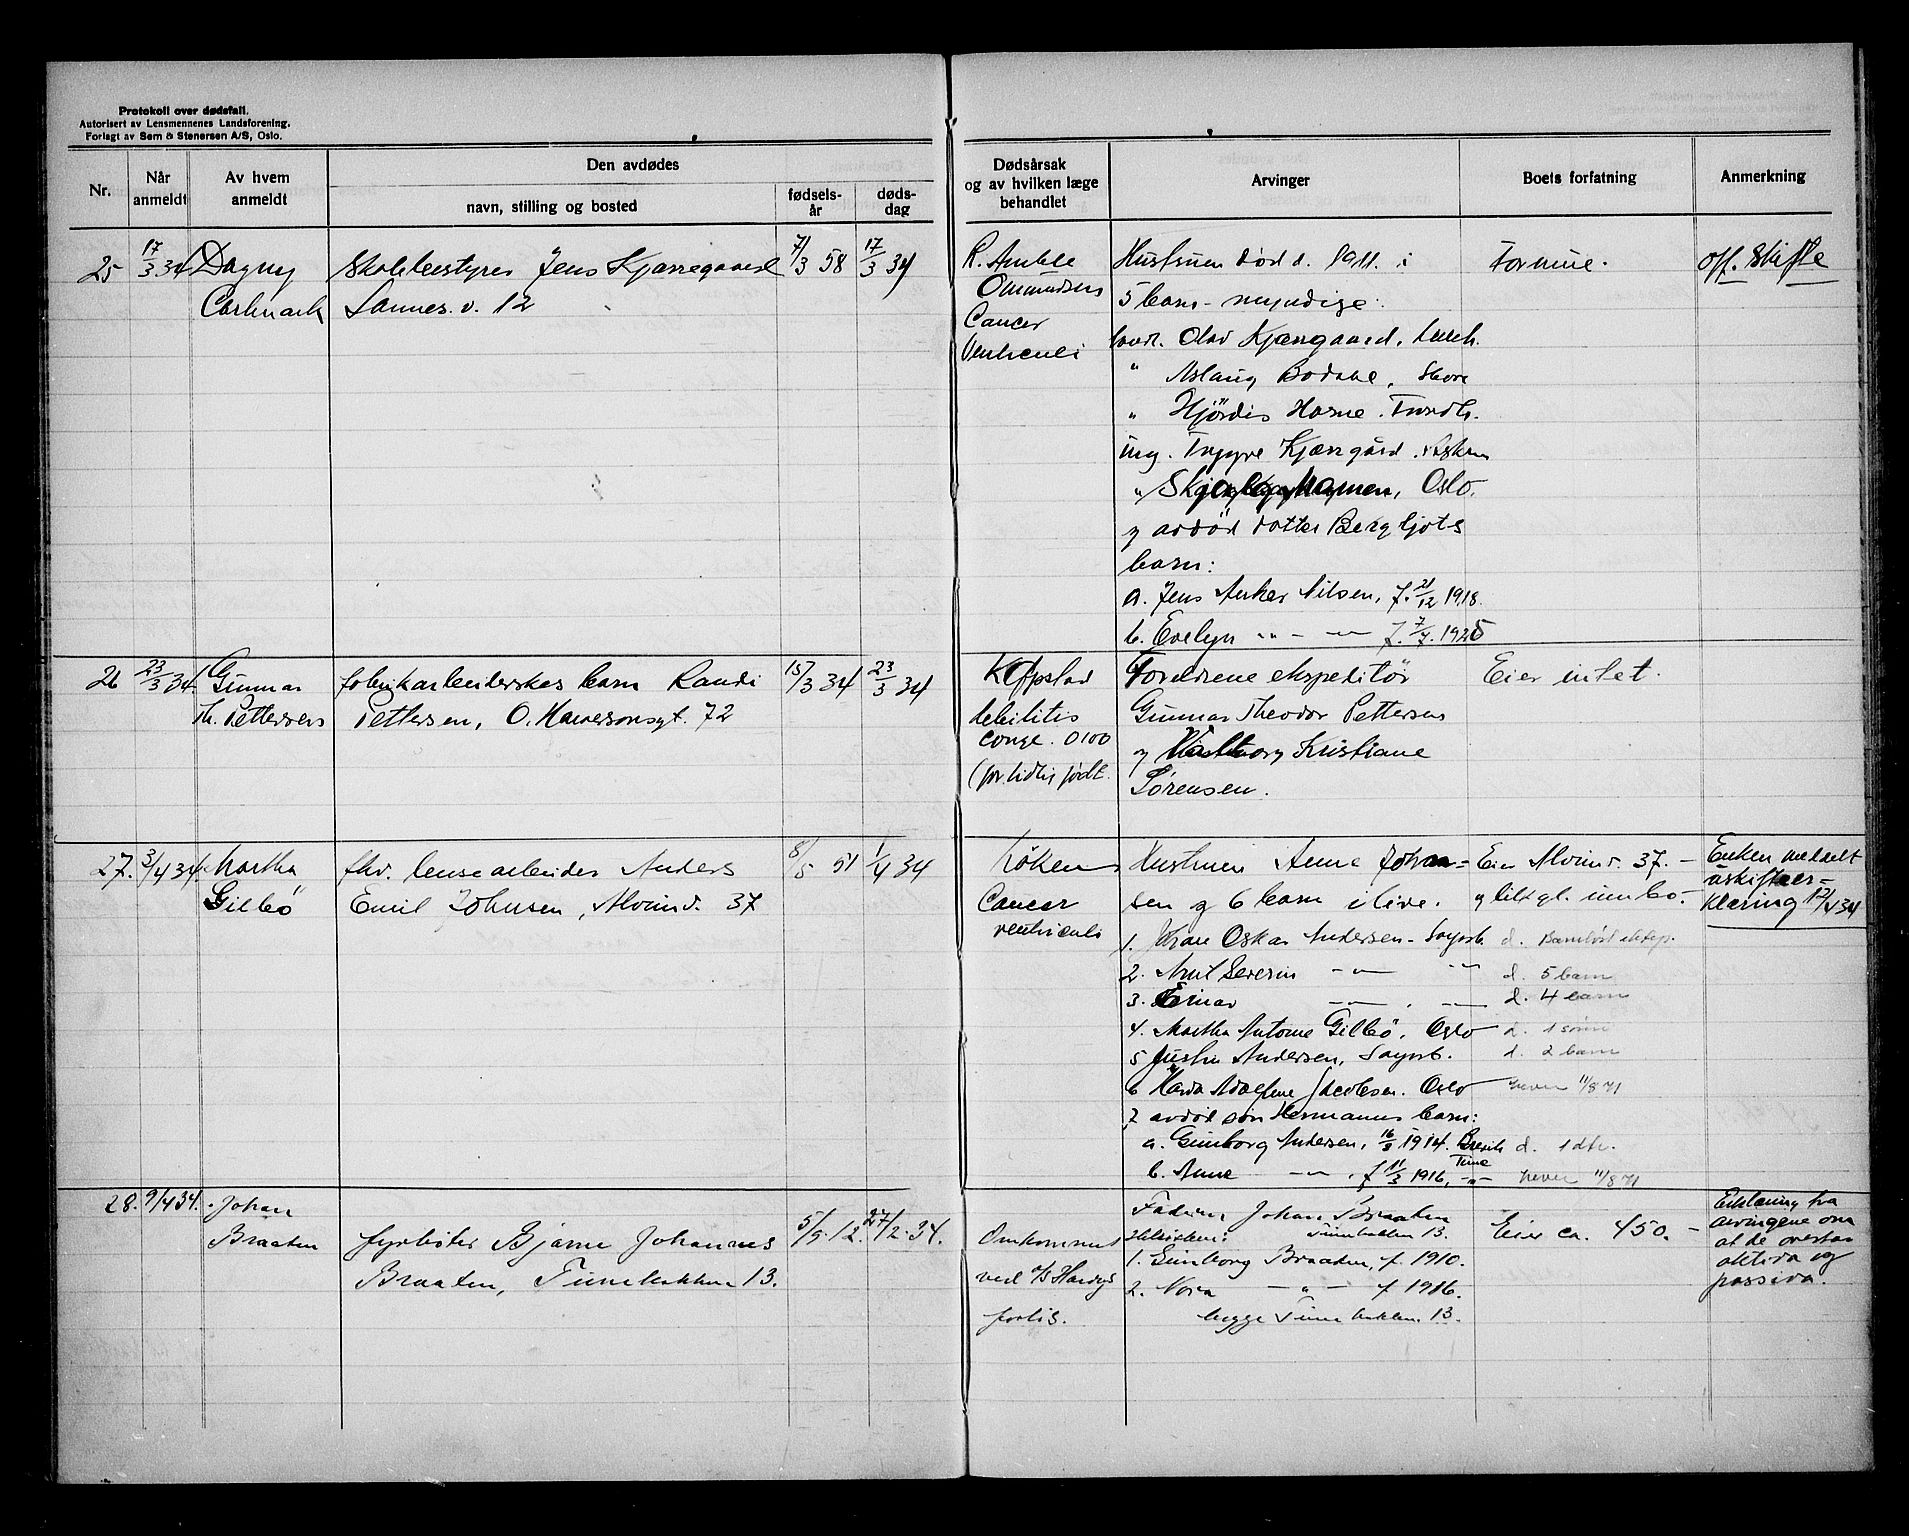 Protokoll over dødsfall.
Autorisert av Lensmennenes Landsforening.
Forlagt av Sem & Stenersen A/S, Oslo.
Nr.
Når anmeldt
Av hvem anmeldt
Den avdødes
navn, stilling og bosted
fødsels-år
døds-dag
Dødsårsak og av hvilken læge behandlet
Arvinger
Boets forfatning
Anmerkning
25 17/3 34 Dagny Jens Kjærregaard 7/3 58 17/3 34
Sannes. v. 12
Cancer
Ventriculi
Hustruen død i 1911.
5 barn - myndige:
Olav Kjærgaard.
" Aslaug
" Hjördis
ing. Kjærgård.
" Oslo.
og avdöd datter Bergljots
barn:
a. Jens Anker Nilsen, f. 21/12 1918.
b. Evelyn -"- f. 7/7. 1925
Formue.
off. Skifte
26 23/3 34 Gunnar
Th. Pettersen
fabrikarbeiderskes barn Randi
Pettersen, O. Haversonsgt. 72
15/3 34 23/3 34
Kopstad
debilitis
conge. 0100
(for tidlig født.
Foreldrene ekspeditör
Gunnar Theodor Pettersen
og Kristiane
Sørensen.
Eier intet.
27. 3/4 34 Martha
Gilbö
fhv. lensearbeider Anders
Emil Johnsen, Alvimv. 37
8/5 51 1/4 34
Løken
Cancer
ventriculi
Hustruen Anne Johan=
sen og 6 barn i live.
1. Oskar Andersen - Sarpsb. d.
2. Severin -"- " d. 5 barn
3. Einar -"- . -"- d. 4 barn
4. Martha Antonie Gilbö, Oslo d. 1 sönn
5 Andersen, Sarpsb. d. 2 barn
6 Jacobsen. Oslo lever 11/8 71
7 avdöd sön Hermanns barn:
a. Gunborg Andersen, 16/3 1914. d. 1 dtr.
b. Anne -"- , f 11/3 1916, -"- lever 11/8 71
Eier Alvimv. 37. -
og litt gl. innbo. -
Enken meddelt
uskifteer=
klæring 12/4 34
28. 9/4 34. Johan
Braaten
fyrböter Bjarne Johannes
Braaten, Tunebakken 13.
5/9. 12. 27/2. 34.
Omkommet
ved Hardys
forlis.
Faderen Johan Braaten
Tunebakken 13.
1. Gunborg Braaten, f. 1910.
2. Nora -"- f 1916.
begge Tunebakken. 13.
Eier ca. 450. -
Erklæring fra
arvingene om
at de overtar
aktiva og
passiva.